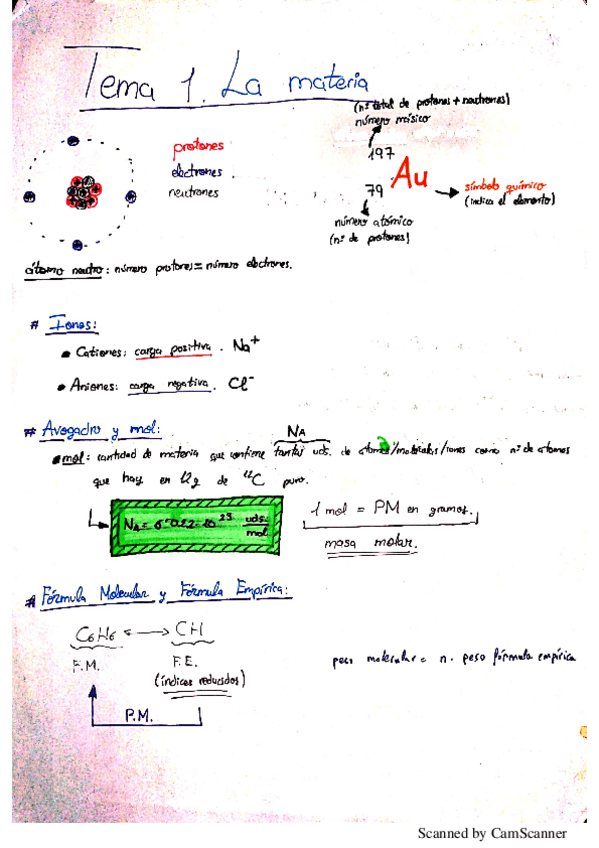 Tema 1. La materia
(nº total de protones + neutrones)
número másico
protones
electrones
neutrones
197
79
Au
símbolo químico
(indica el elemento)
número atómico
(nº de protones)
átomo neutro: número protones = número electrones.
# Iones:
• Cationes: carga positiva. Na⁺
• Aniones: carga negativa. Cl⁻
# Avogadro y mol:
NA
• mol: cantidad de materia que contiene tantas uds. de átomos/moléculas/iones como nº de átomos
que hay en 12g de ¹²C puro.
NA = 6'022·10²³ uds/mol
1 mol = PM en gramos.
masa molar.
# Fórmula Molecular y Fórmula Empírica:
C6H6 ⟷ CH
F.M. F.E.
(índices reducidos)
P.M.
peso molecular = n. peso fórmula empírica
Scanned by CamScanner